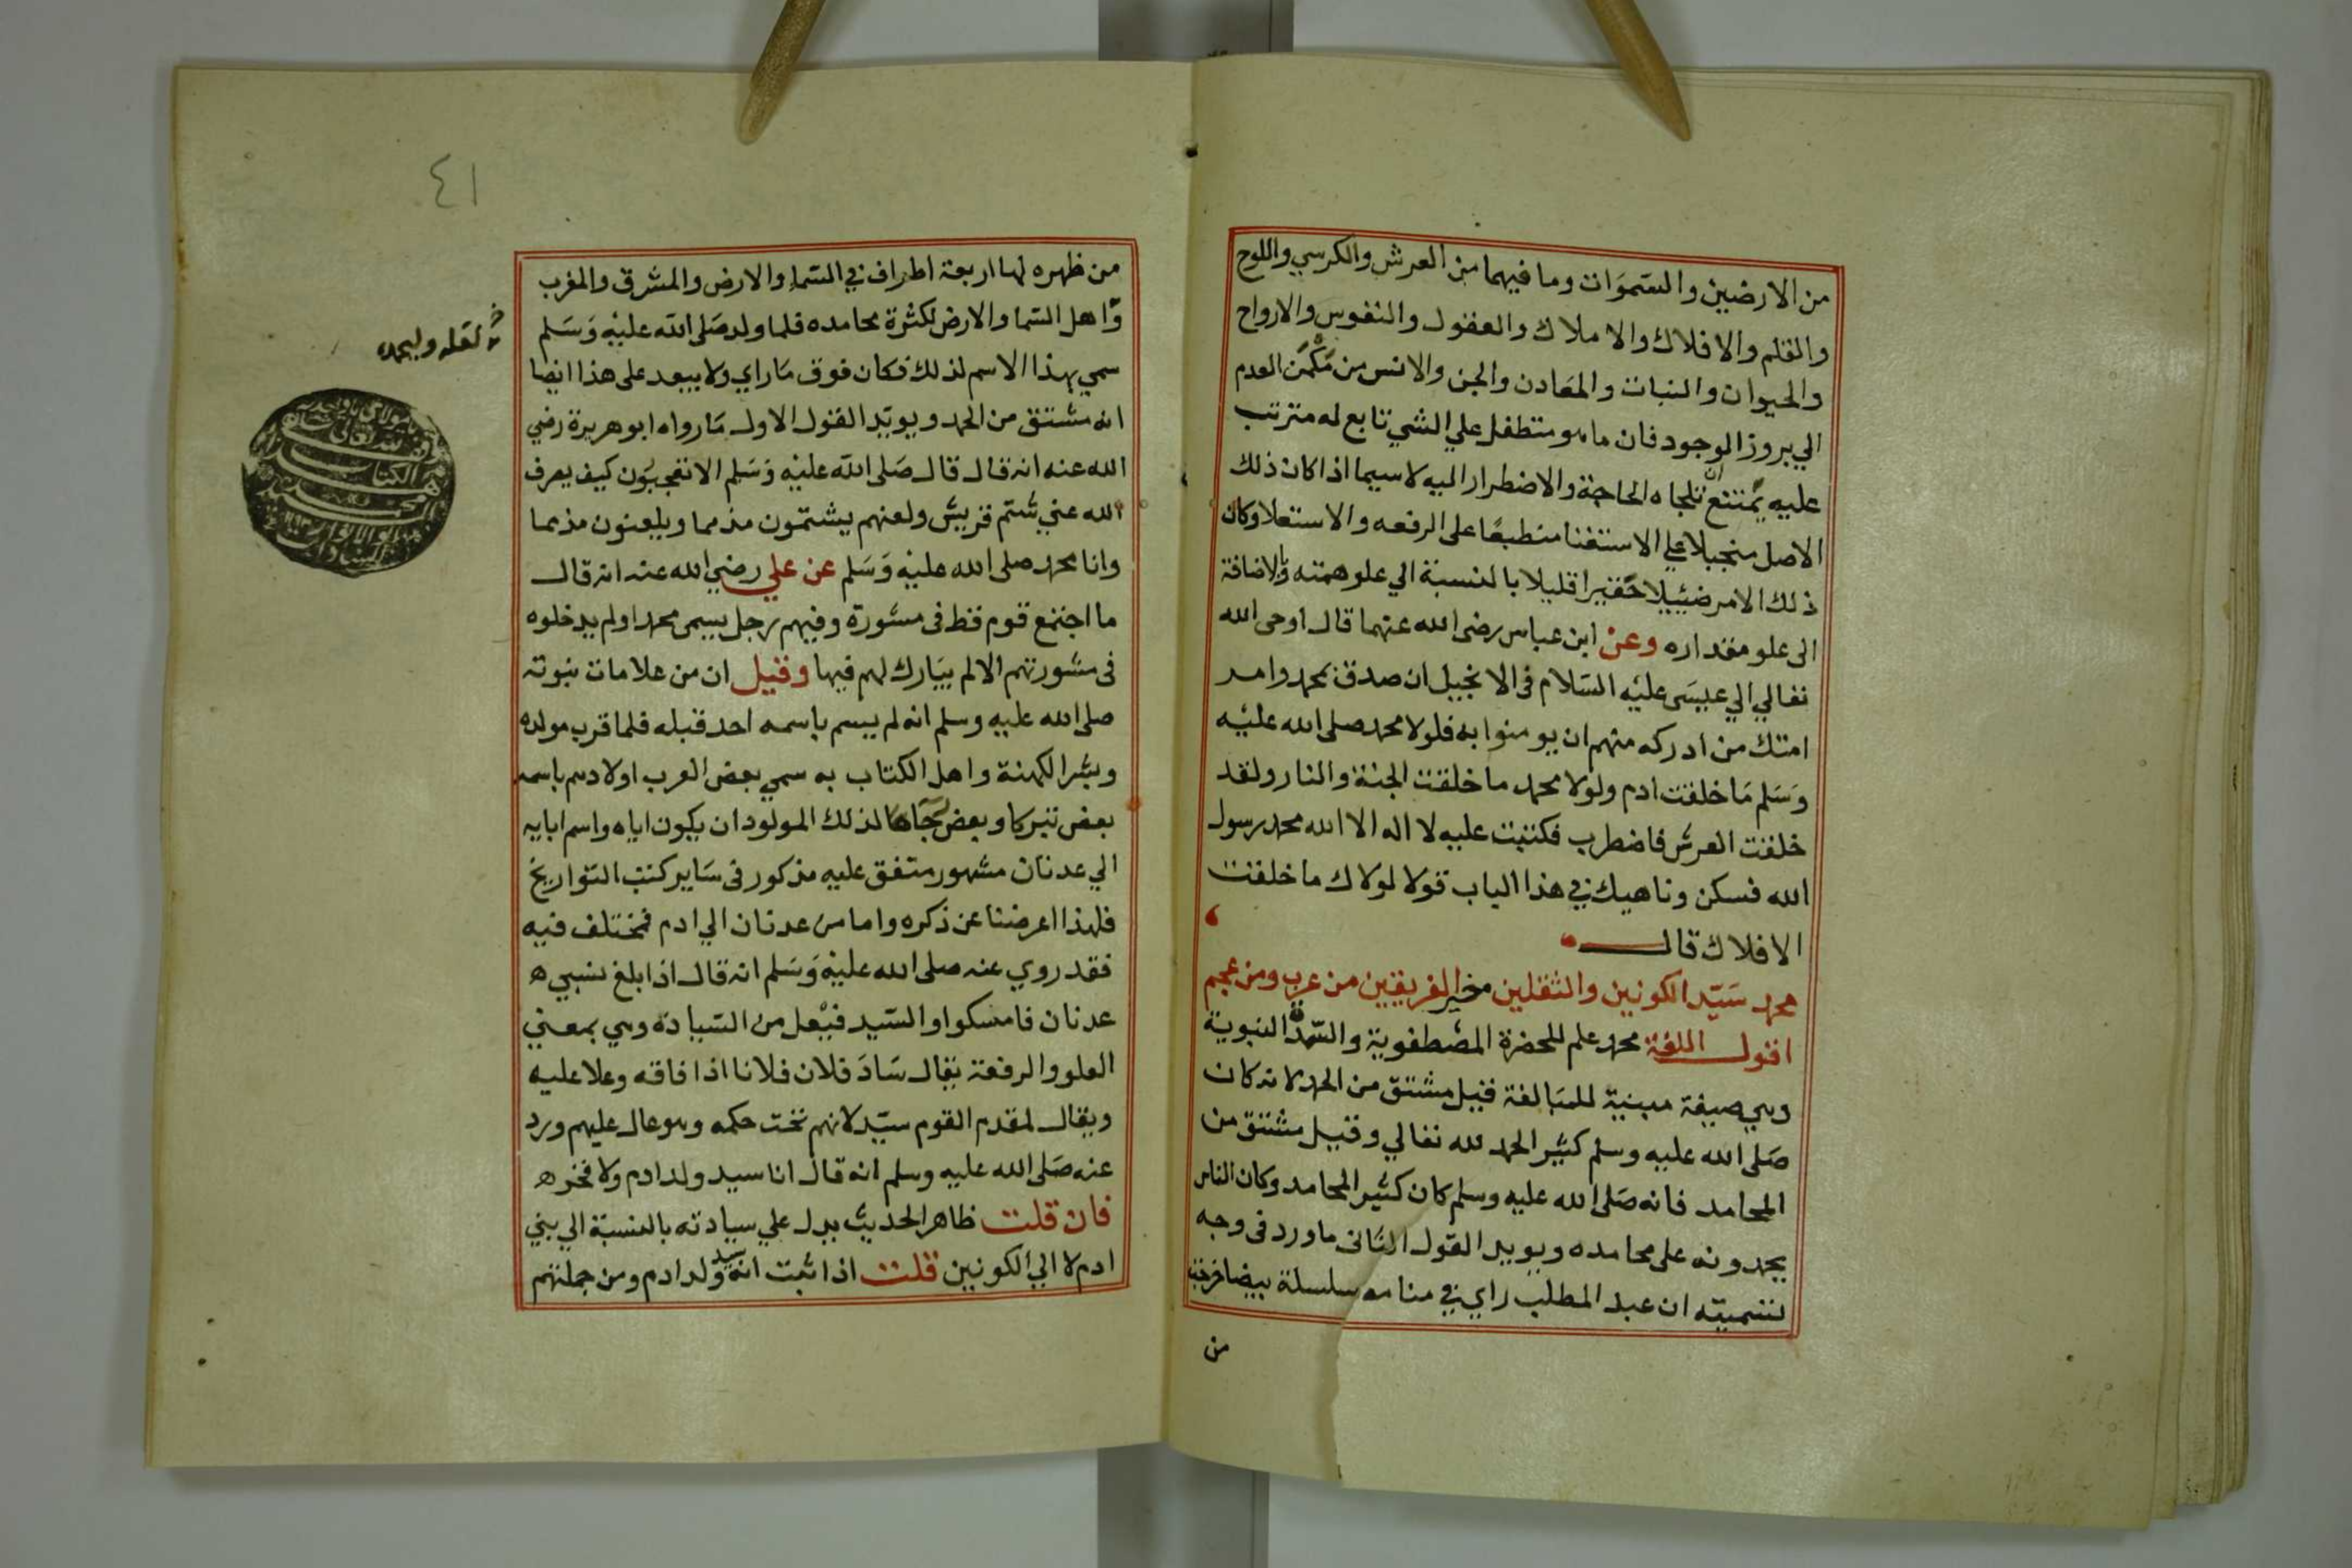 من الارضين والسموات وما فيهما من العرش والكرسي واللوح
والقلم والافلاك والاملاك والعقول والنفوس والارواح
والحيوان والنبات والمعادن والجن والانس من مكمن العدم
الي بروز الوجود فان ما هو متطفل علي الشي تابع له مترتب
عليه يمتنع ان تلجاه الحاجة والاضطرار اليه لا سيما اذا كان ذلك
الاصل منجبلا علي الاستغنا منطبعا على الرفعه والاستعلا وكان
ذلك الامر ضئيلا حقيرا قليلا بالنسبة الي علو همته والاضافة
الى علو مقداره وعن ابن عباس رضى الله عنهما قال اوحى الله
تعالي الي عيسى عليه السلام فى الانجيل ان صدق بمحمد وامر
امتك من ادركه منهم ان يومنوا به فلولا محمد صلى الله عليه
وسلم ما خلقت ادم ولولا محمد ما خلقت الجنة والنار ولقد
خلقت العرش فاضطرب فكتبت عليه لا اله الا الله محمد رسول
الله فسكن وناهيك في هذا الباب قولا لولاك ما خلقت
الافلاك قال
محمد سيد الكونين والثقلين خير الفريقين من عرب ومن عجم
اقول اللغة محمد علم للحضرة المصطفوية والسدة النبوية
وهي صيغة مبنية للمبالغة قيل مشتق من الحمد لانه كان
صلى الله عليه وسلم كثير الحمد لله تعالي وقيل مشتق من
المحامد فانه صلى الله عليه وسلم كان كثير المحامد وكان الناس
يحمدونه على محامده ويويد القول الثانى ما ورد فى وجه
تسميته ان عبد المطلب راي في منامه سلسلة بيضا خرجت
من
٤١
من ظهره لها اربعة اطراف في السماء والارض والمشرق والمغرب
واهل السما والارض لكثرة محامده فلما ولد صلى الله عليه وسلم
سمي بهذا الاسم لذلك فكان فوق ما راي ولا يبعد على هذا ايضا
انه مشتق من الحمد ويويد القول الاول ما رواه ابو هريرة رضي
الله عنه انه قال قال صلى الله عليه وسلم الا تعجبون كيف يصرف
الله عني شتم قريش ولعنهم يشتمون مذمما ويلعنون مذمما
وانا محمد صلى الله عليه وسلم عن علي رضي الله عنه انه قال
ما اجتمع قوم قط فى مشورة وفيهم رجل يسمى محمدا ولم يدخلوه
فى مشورتهم الا لم يبارك لهم فيها وقيل ان من علامات نبوته
صلى الله عليه وسلم انه لم يسم باسمه احد قبله فلما قرب مولده
وبشر الكهنة واهل الكتاب به سمي بعض العرب اولادهم باسمه
بعض تبركا وبعض لذلك المولود ان يكون اياه واسم ابايه
الي عدنان مشهور متفق عليه مذكور فى ساير كتب التواريخ
فلهذا اعرضنا عن ذكره واما من عدنان الي ادم فمختلف فيه
فقد روي عنه صلى الله عليه وسلم انه قال اذا بلغ نسبي ه
عدنان فامسكوا والسيد فيعل من السيادة وهي بمعني
العلو والرفعة يقال ساد فلان فلانا اذا فاقه وعلا عليه
ويقال لمقدم القوم سيد لانهم تحت حكمه وهو عال عليهم ورد
عنه صلى الله عليه وسلم انه قال انا سيد ولد ادم ولا فخر ه
فان قلت ظاهر الحديث يدل علي سيادته بالنسبة الي بني
ادم لا الي الكونين قلت اذا ثبت انه سيد ولد ادم ومن جملتهم